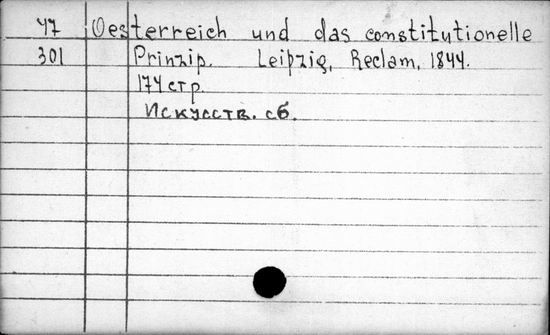 47 Oesterreich und das constitutionelle
301 Prinzip. Leipzig, Reclam, 1844.
174 стр.
Искусств. сб.